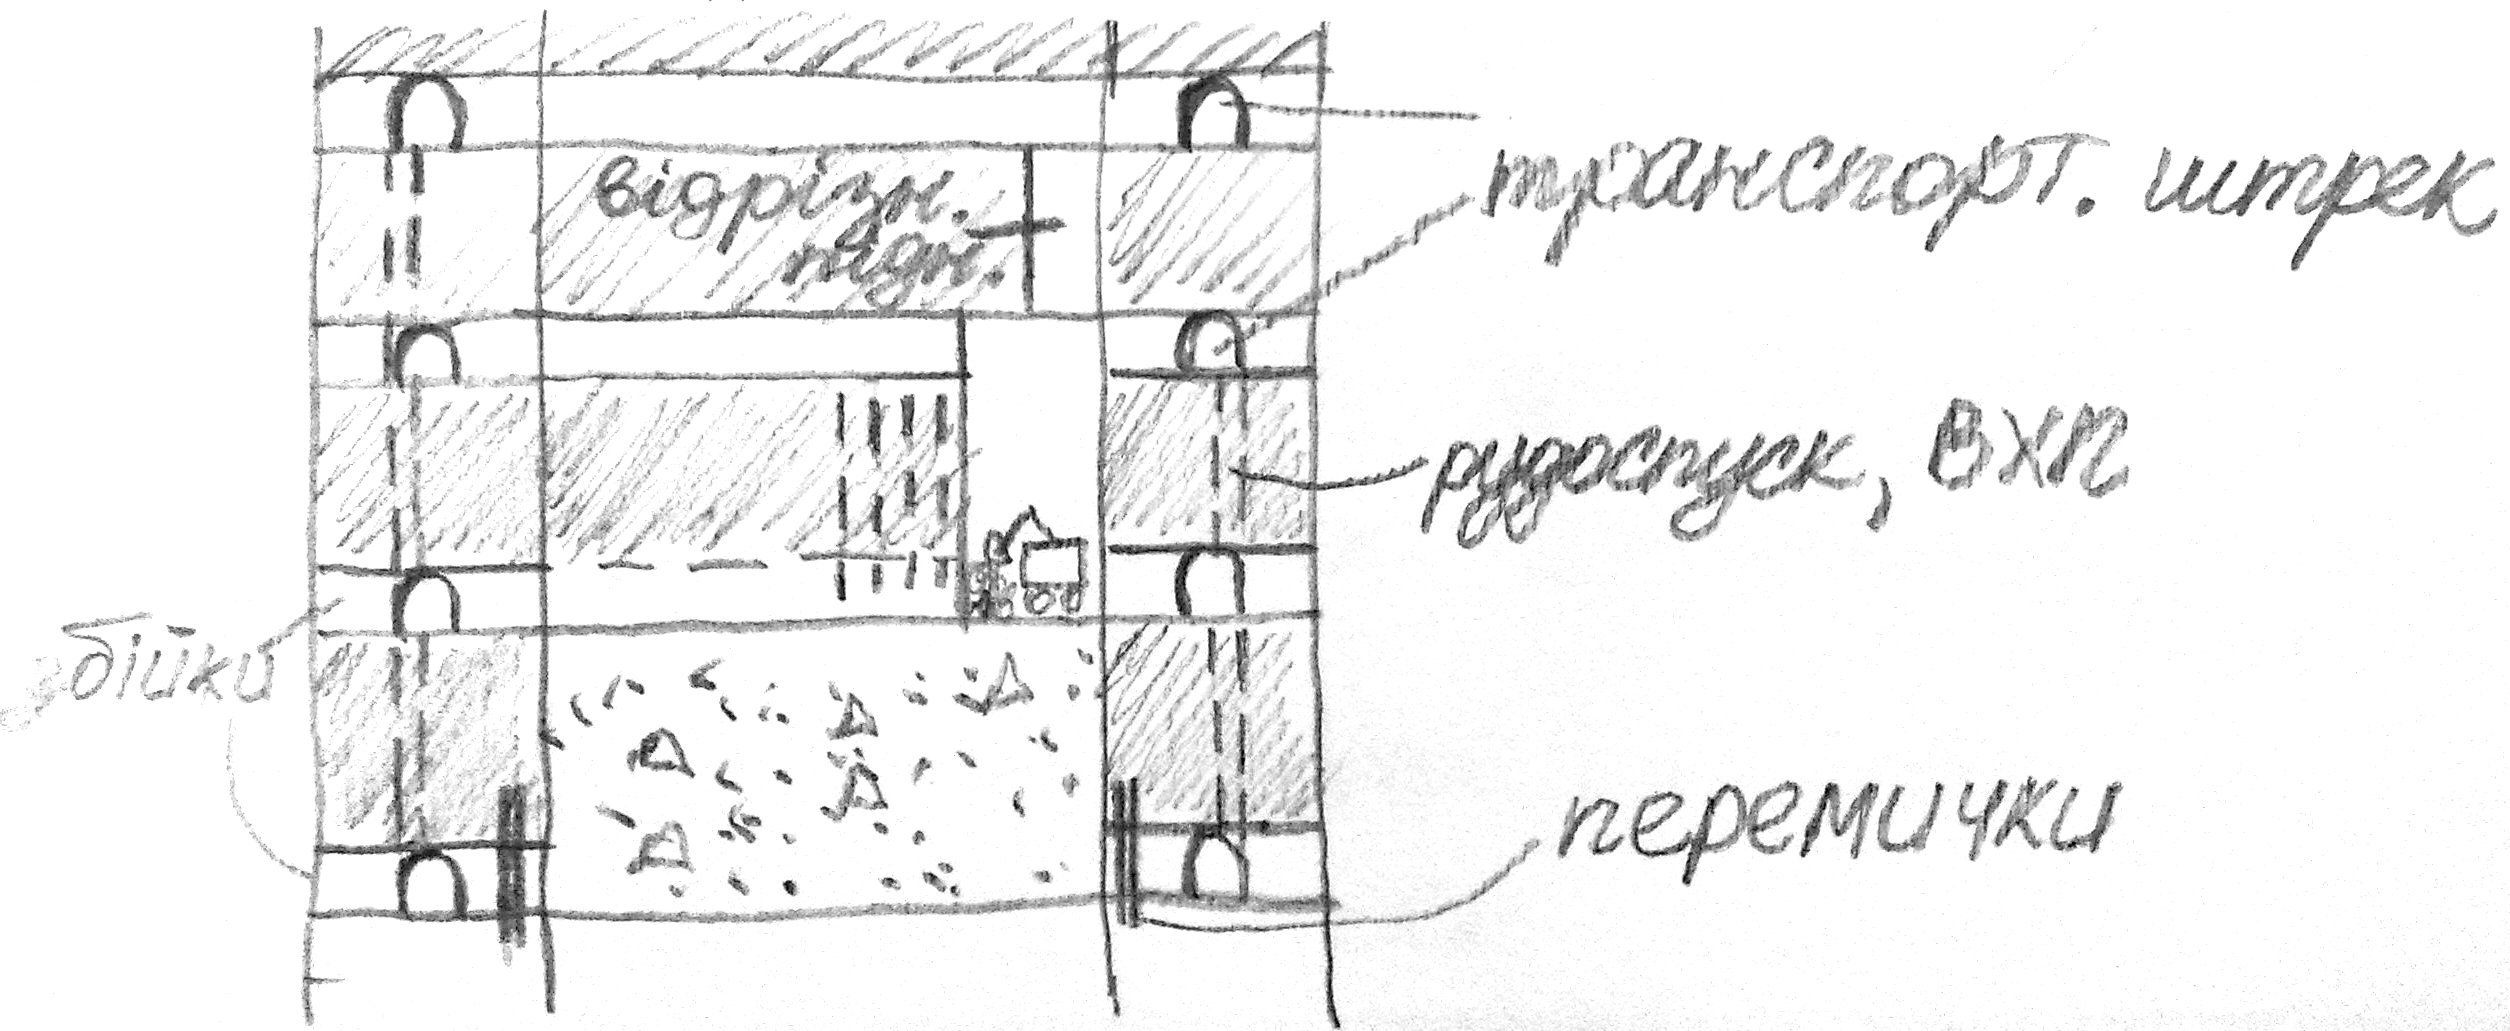 відрізн.
підн.
транспорт. штрек
рудоспуск, ВХП
збійки
перемички